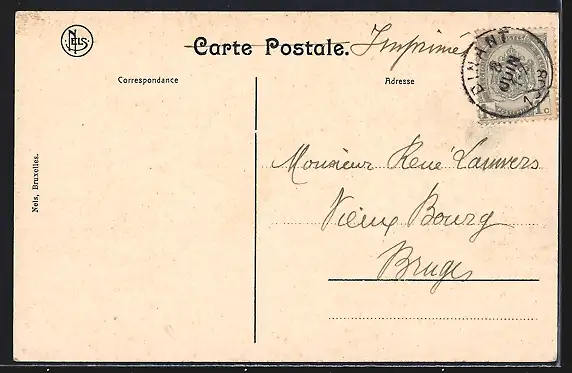 NELS
Carte Postale. Imprimé
Correspondance
Adresse
DINANT
8
JUIN
1 C
Monsieur René Lauwers
Vieux Bourg
Bruges
Nels, Bruxelles.